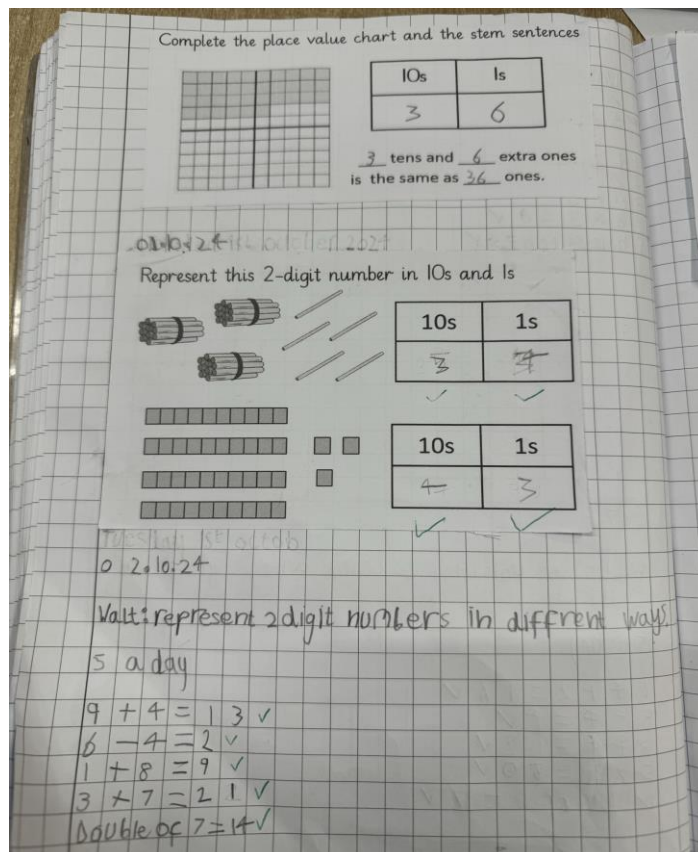 Complete the place value chart and the stem sentences
10s 1s
3 6
3 tens and 6 extra ones
is the same as 36 ones.
01.10.24
Represent this 2-digit number in 10s and 1s
10s 1s
3
10s 1s
4 3
0 2.10.24
Walt: represent 2 digit numbers in diffrent ways.
5 a day
9 + 4 = 13 ✓
6 - 4 = 2 ✓
1 + 8 = 9 ✓
3 × 7 = 21 ✓
Double of 7 = 14 ✓